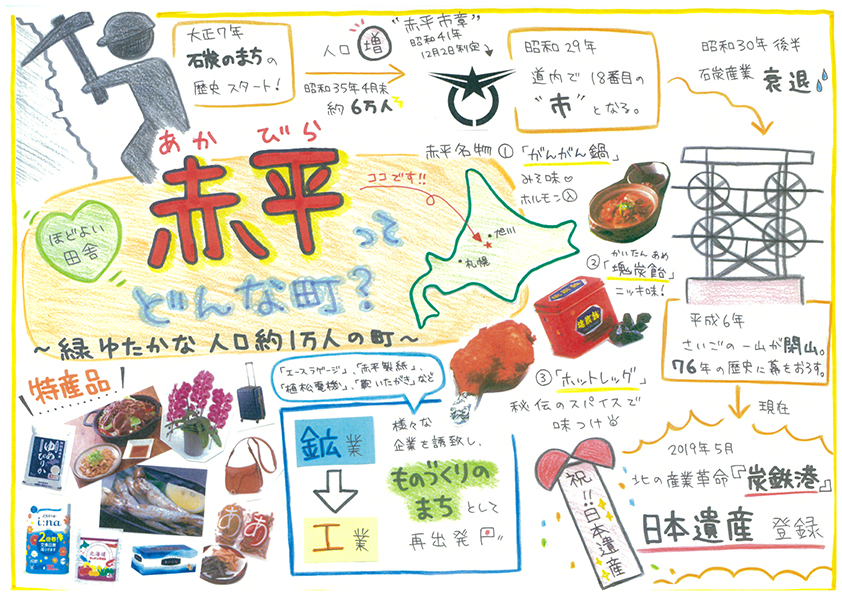 大正7年
石炭のまちの
歴史スタート!
人口増
昭和35年4月末
約6万人
"赤平市章"
昭和41年
12月2日制定
昭和29年
道内で18番目の
"市"となる。
昭和30年後半
石炭産業 衰退
あかびら
赤平って
どんな町?
ほどよい
田舎
～緑ゆたかな 人口約1万人の町～
ココです!!
旭川
札幌
赤平名物①「がんがん鍋」
みそ味
ホルモン入
かいたんあめ
②「塊炭飴」
ニッキ味!
塊炭飴
③「ホットレッグ」
秘伝のスパイスで
味つけ
平成6年
さいごの一山が閉山。
76年の歴史に幕をおろす。
現在
2019年5月
北の産業革命『炭鉄港』
日本遺産 登録
祝!!日本遺産
特産品
ゆめぴりか
i:na
2倍巻
北海道
「エースラゲージ」、「赤平製紙」、
「植松電機」、「いたがき」など
鉱業
工業
様々な
企業を誘致し、
ものづくりの
まちとして
再出発